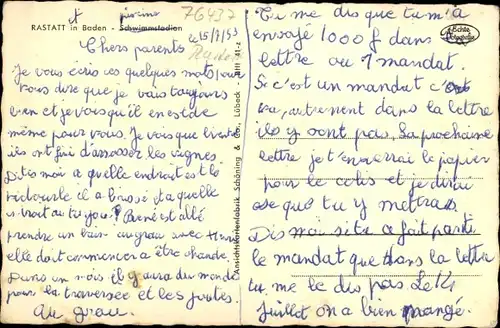 RASTATT in Baden - Schwimmstadion
piscine
76437
le 15/7/53
Chers parents
Je vous écris ces quelques mots pour
vous dire que je vais toujours
bien et je vois qu'il en est de
même pour vous. Je vois que
ils ont fini d'arroser les vignes.
Dites moi a quelle endroit est le
il a brosé et a quelle
René est allé
prendre un bain au grau avec
elle doit commencer a être chaude.
Dans un mois il y aura du monde
pour la traversée et les joutes.
Au grau.
Ansichtkartenfabrik Schöning & Co., Lübeck
Echte Fotografie
Tu me dis que tu m'a
envoyé 1000 f dans
lettre ou 1 mandat.
Si c'est un mandat c'est
autrement dans la lettre
ils y sont pas. La prochaine
lettre je t'enverrai le papier
pour le colis et je dirai
se que tu y mettras.
Dis moi si tu a fait partir
le mandat que dans la lettre
tu me le dis pas Le 14
Juillot on a bien mangé.